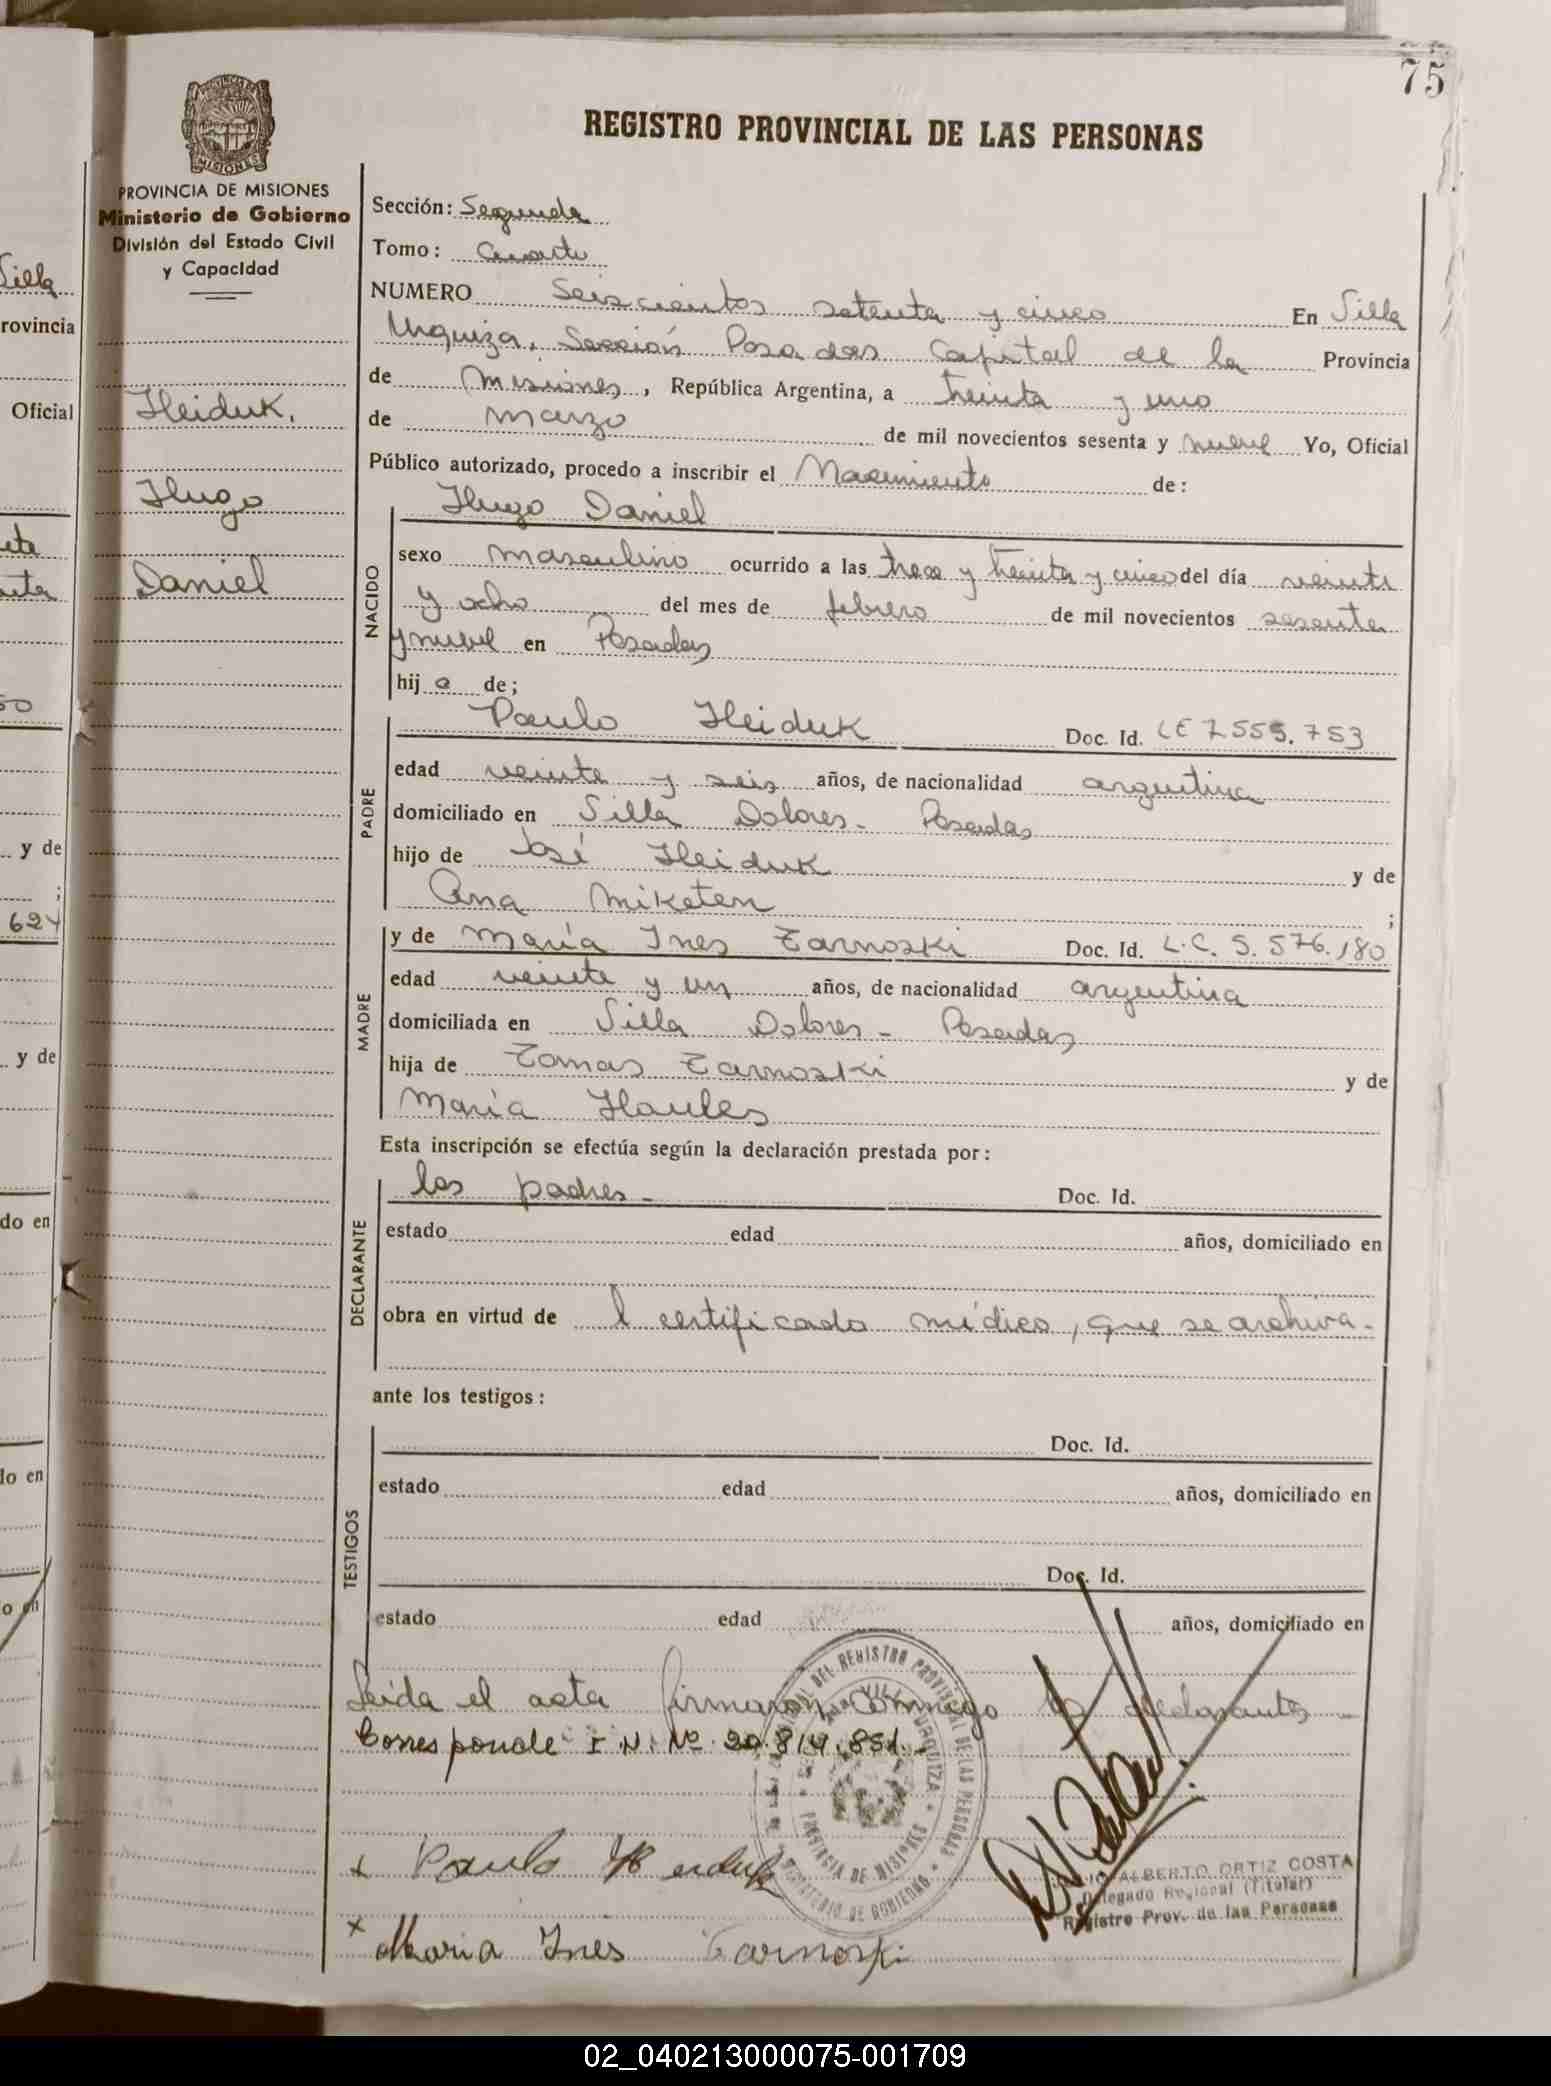 75
REGISTRO PROVINCIAL DE LAS PERSONAS
PROVINCIA DE MISIONES
Ministerio de Gobierno
División del Estado Civil
y Capacidad
Heiduk.
Hugo
Daniel
Sección: Segunda
Tomo: Cuarto
NUMERO Seiscientos setenta y cinco En Villa
Urquiza, Sección Posadas Capital de la Provincia
de Misiones, República Argentina, a treinta y uno
de marzo de mil novecientos sesenta y nueve Yo, Oficial
Público autorizado, procedo a inscribir el Nacimiento de:
Hugo Daniel
NACIDO
sexo masculino ocurrido a las trece y treinta y cinco del día veinte
y ocho del mes de febrero de mil novecientos sesenta
y nueve en Posadas
hijo de;
Paulo Heiduk Doc. Id. LE 7.555.753
PADRE
edad veinte y seis años, de nacionalidad argentina
domiciliado en Villa Dolores - Posadas
hijo de José Heiduk y de
Ana Miketen ;
y de María Ines Zarnoski Doc. Id. L.C. 5.576.180
MADRE
edad veinte y un años, de nacionalidad argentina
domiciliada en Villa Dolores - Posadas
hija de Tomas Zarnoski y de
María
Esta inscripción se efectúa según la declaración prestada por:
los padres - Doc. Id.
DECLARANTE
estado edad años, domiciliado en
obra en virtud de l certificado médico, que se archiva.
ante los testigos:
Doc. Id.
TESTIGOS
estado edad años, domiciliado en
Doc. Id.
estado edad años, domiciliado en
Leída el acta firmaron conmigo los declarantes -
Corresponde I.N. Nº 20.814.851.-
x Paulo Heiduk
x Maria Ines Zarnoski
ALBERTO ORTIZ COSTA
Delegado Regional (Titular)
Registro Prov. de las Personas
Villa
rovincia
Oficial
y de
;
624
y de
do en
lo en
o en
02_040213000075-001709